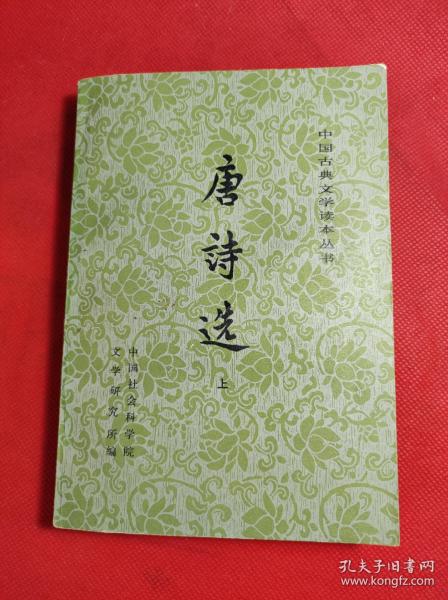 中国古典文学读本丛书
唐詩选
上
中国社会科学院
文学研究所编
孔夫子旧书网
www.kongfz.com